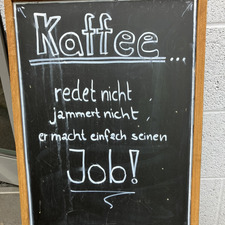 Kaffee...
redet nicht,
jammert nicht,
er macht einfach seinen
Job!